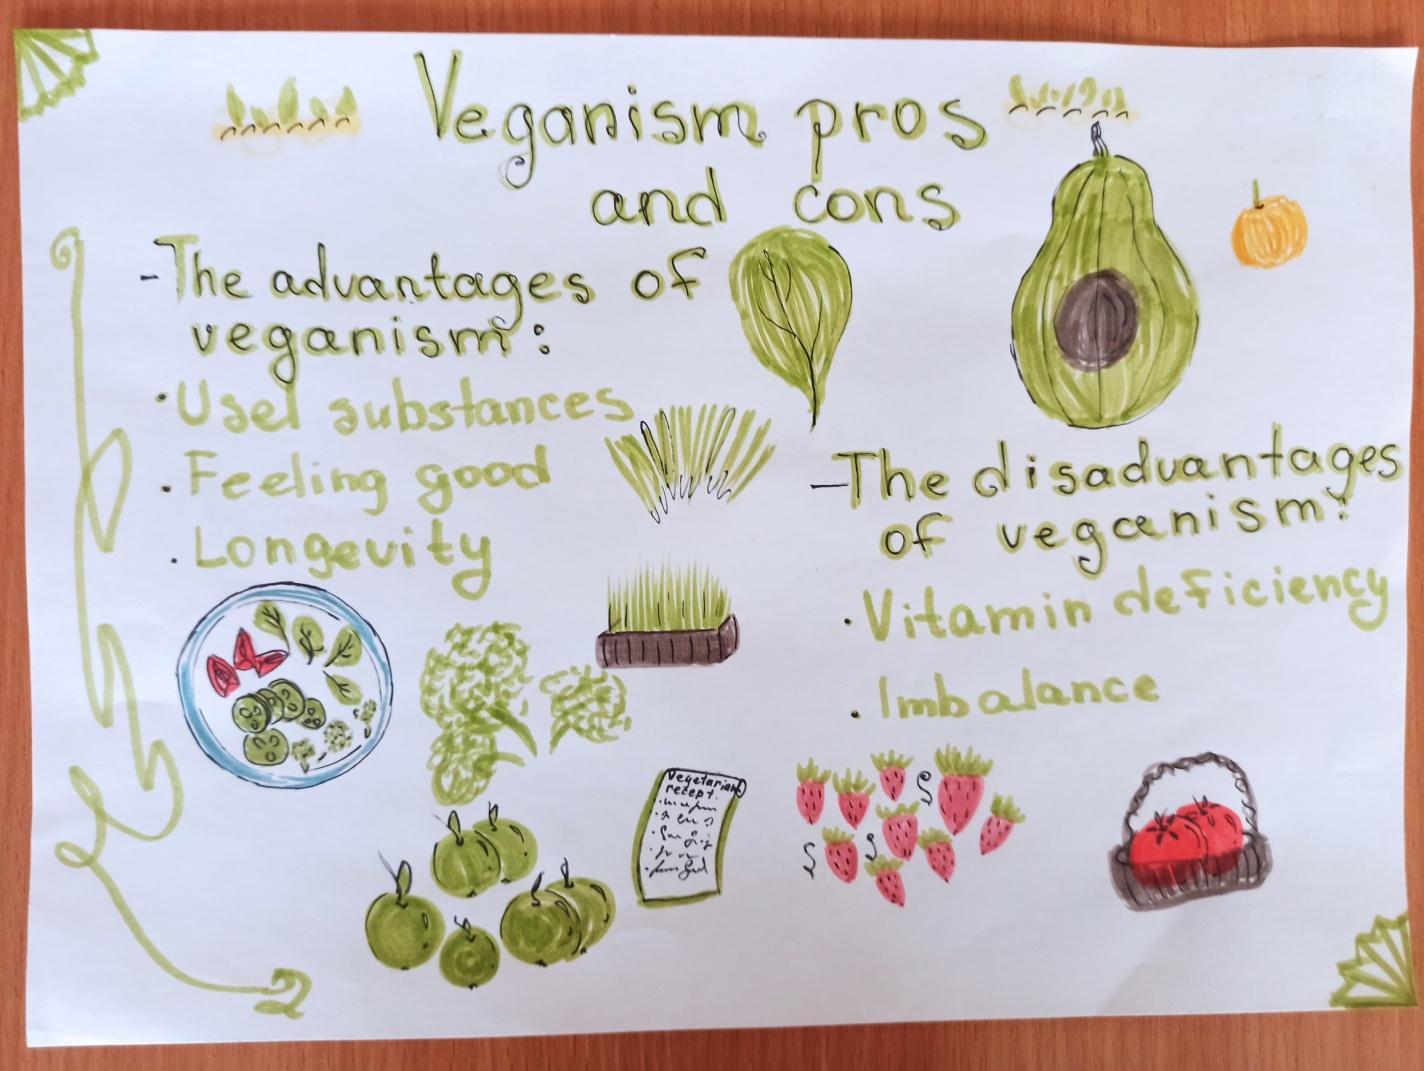 Veganism pros
and cons
-The advantages of
veganism:
· Usel substances
· Feeling good
· Longevity
-The disadvantages
of veganism:
· Vitamin deficiency
· Imbalance
Vegetarian
recept